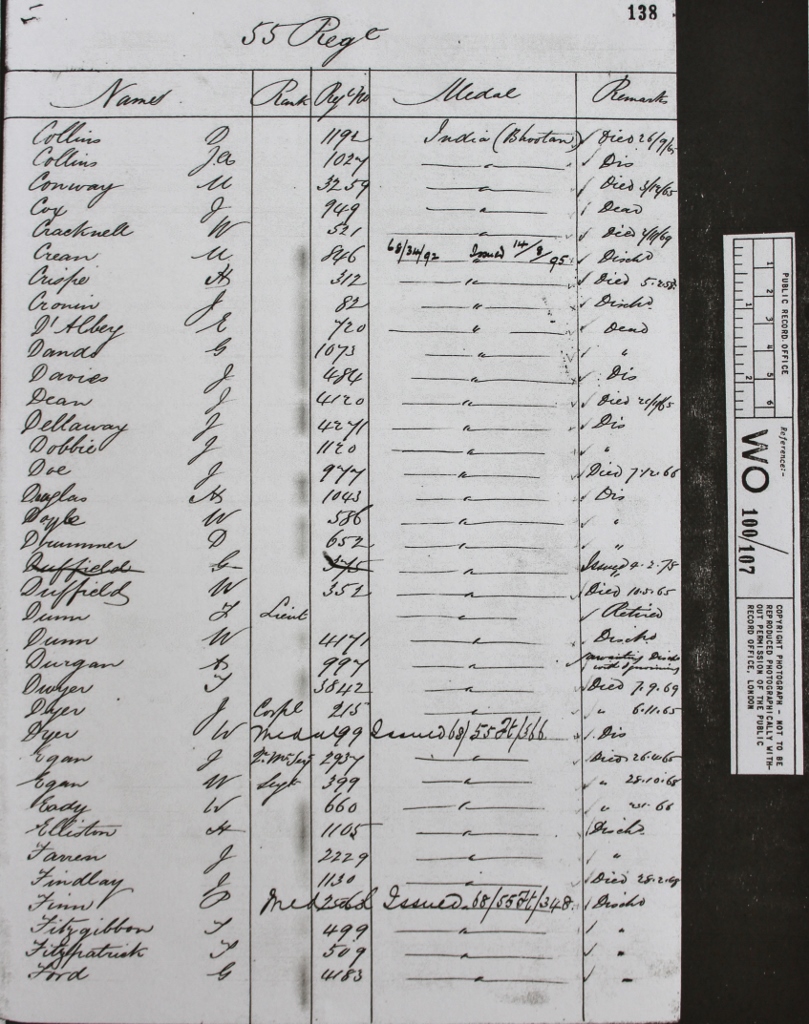 138
55 Regt
Names Rank Regt No Medal Remarks
Collins D 1192 India (Bhootan) Died 26/7/65
Collins Ja 1027 " Dis
Conway M 3259 " Died 3/12/65
Cox J 949 " Dead
Cracknell W 521 " Died
Crean M 846 68/34/92 Issued 14/8/95 Dischd
Crispe H 312 " Died
Cronin J 82 " Dischd
D'Albey E 720 " Dead
Dands G 1073 " "
Davies J 484 " Dis
Dean J 4120 " Died
Dellaway J 4271 " Dis
Dobbie J 1120 " "
Doe J 977 " Died 7.12.66
Douglas H 1043 " Dis
Doyle W 586 " "
Drummer D 652 " "
Duffield G 375 " Issued 9.2.75
Duffield W 352 " Died 10.5.65
Dunn F Lieut " Retired
Dunn W 4171 " Dischd
Durgan 997 " awaiting Disch
Dwyer T 3842 " Died 7.9.69
Dyer J Corpl 215 " " 6.11.65
Dyer W Medal 99 Issued 68/55Ft/366 Dis
Egan J 2937 " Died
Egan W Sergt 399 " " 28.10.65
Eady W 660 " "
Elliston H 1105 " Dischd
Farren J 2229 " "
Findlay J 1130 " Died
Finn P Medal Issued 68/55Ft/348 Dischd
Fitzgibbon T 499 " "
Fitzpatrick T 509 " "
Ford G 4183 " "
PUBLIC RECORD OFFICE
1 2 3 4 5 6
1 2
Reference:-
WO 100/107
COPYRIGHT PHOTOGRAPH - NOT TO BE
REPRODUCED PHOTOGRAPHICALLY WITH-
OUT PERMISSION OF THE PUBLIC
RECORD OFFICE, LONDON